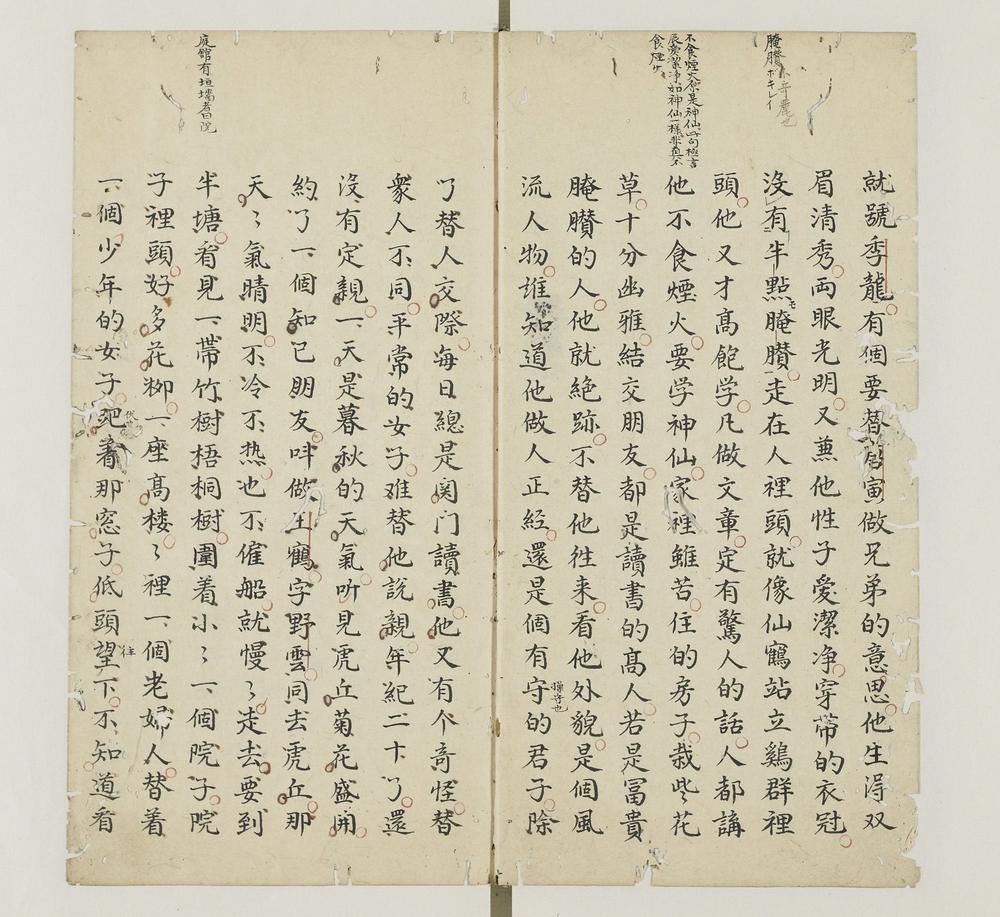 腌臢不奇麗也
ボキレイ
不食煙火原是神仙此句極言
辰愛潔净如神仙一樣非真不
食煙火
就號季龍有個要替伯寅做兄弟的意思他生得双
眉清秀両眼光明又兼他性子愛潔净穿帯的衣冠
沒有半點腌臢走在人裡頭就像仙鶴站立鷄群裡
頭他又才髙飽学凡做文章定有驚人的話人都講
他不食煙火要学神仙家裡雖苦住的房子栽些花
草十分幽雅結交朋友都是讀書的髙人若是冨貴
腌臢的人他就絶跡不替他徃来看他外貌是個風
流人物誰知道他做人正經還是個有守的君子除
操守也
庭舘有垣墻者曰院
了替人交際每日總是関门讀書他又有个竒怪替
衆人不同平常的女子难替他說親年紀二十了還
沒有定親一天是暮秋的天氣听見虎丘菊花盛開
約了一個知已朋友呌做王鶴字野雲同去虎丘那
天々氣晴明不冷不热也不催船就慢々走去要到
半塘看見一帯竹樹梧桐樹圍着小々一個院子院
子裡頭好多花栁一座髙楼々裡一個老婦人替着
一個少年的女子靶着那窓子低頭望下不知道看
徃